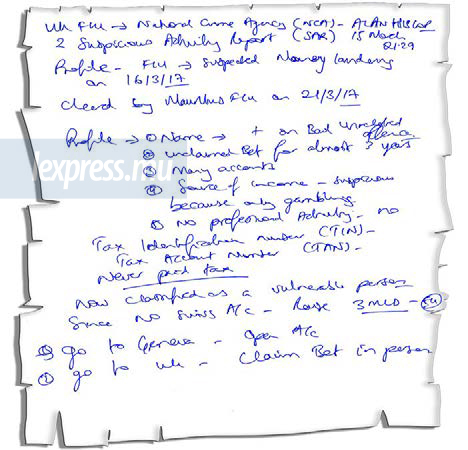 UK FIU → National Crime Agency (NCA) - ALAN
2 Suspicious Activity Report (SAR) 15 March
02:29
Profile - FIU → suspected Money laundering
on 16/3/17
cleared by Mauritius FIU on 21/3/17
Profile → ① Name → + on Bail unresolved offence
② unclaimed Bet for almost 3 years
③ Many accounts
④ Source of income - suspicious
because only gambling.
⑤ No professional Activity - no
Tax Identification number (TIN) -
Tax Account Number (TAN) -
Never paid tax
Now classified as a vulnerable person
Since no Swiss A/c - Raise 3 MLD -
go to Geneva - open A/c
go to UK - Claim Bet in person
lexpress.mu